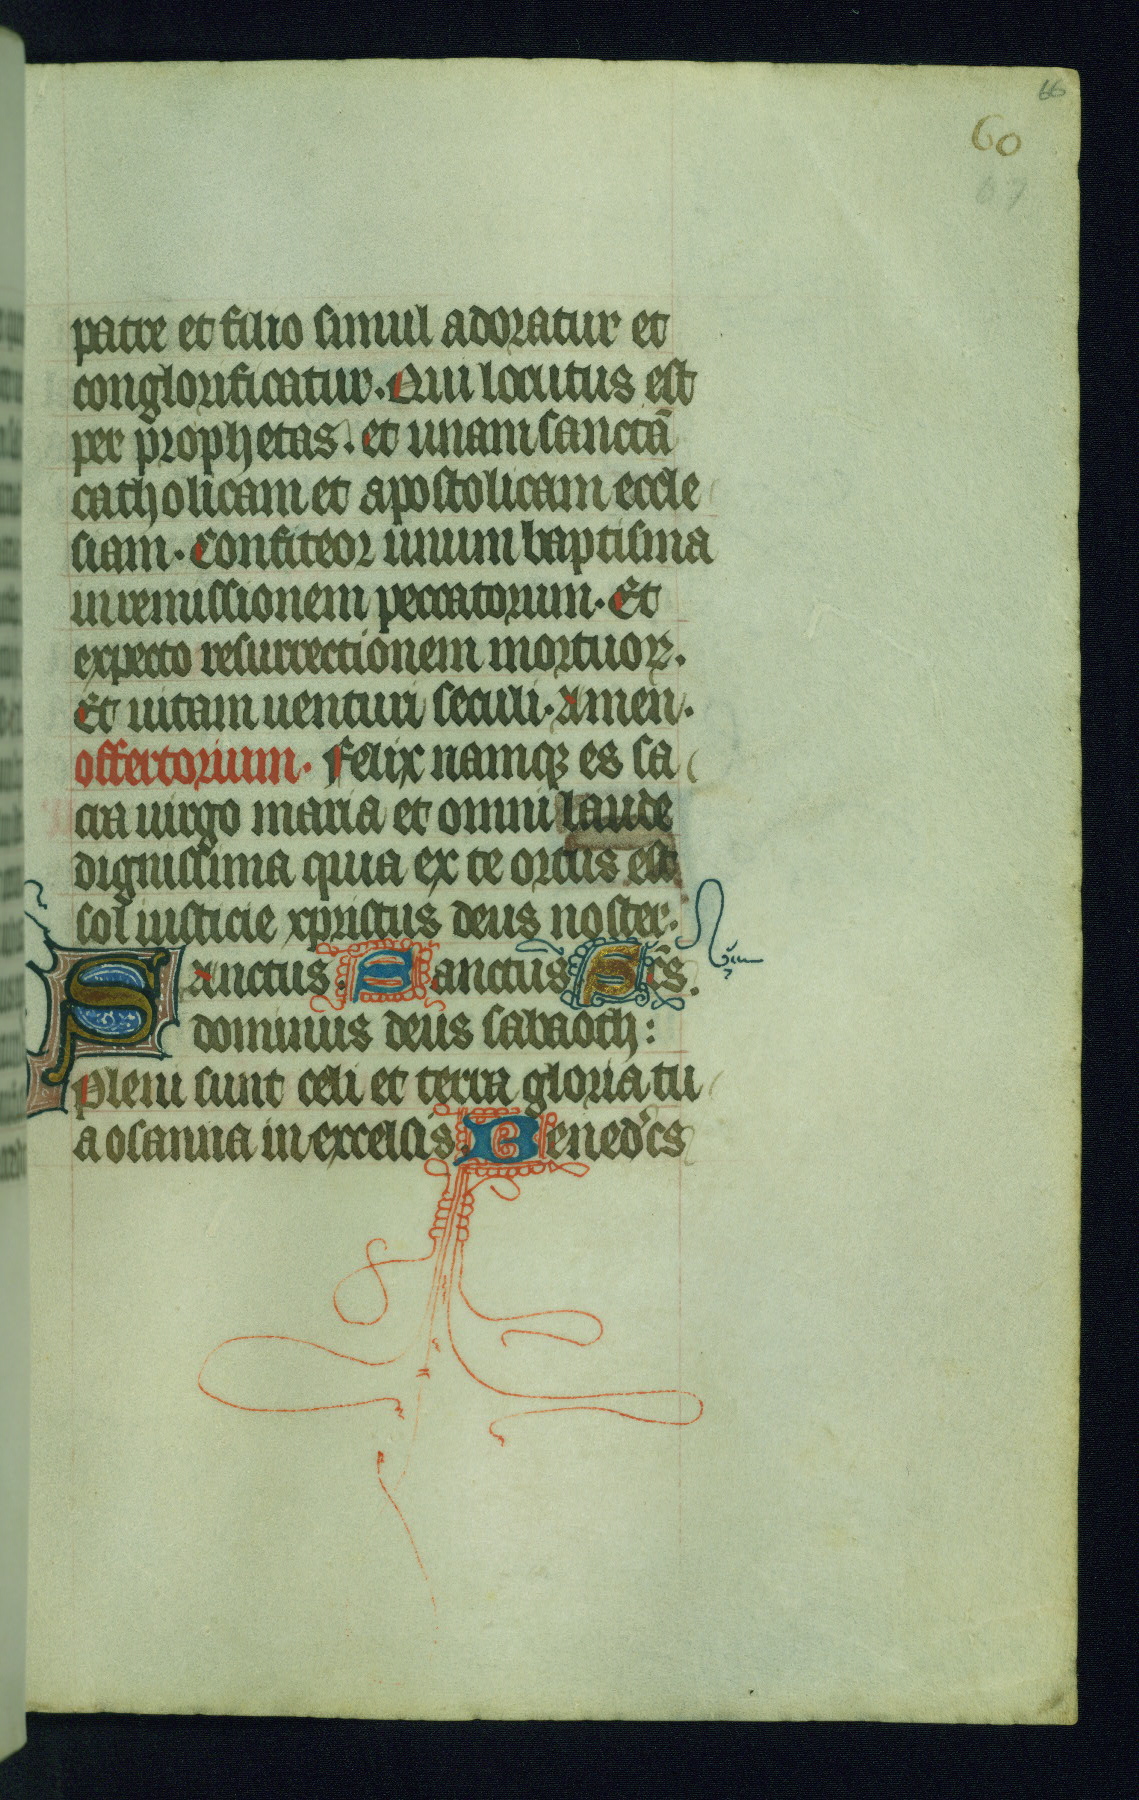 66
60
67
patre et filio simul adoratur et
conglorificatur. Qui locutus est
per prophetas. et unam sanctā
catholicam et apostolicam eccle
siam. Confiteor unum baptisma
in remissionem peccatorum. Et
expecto resurrectionem mortuoꝝ.
Et uitam uenturi seculi. Amen.
offertorium. Felix namqꝫ es sa
cra uirgo maria et omni laude
dignissima quia ex te ortus est
sol iusticie xpristus deus noster.
Sanctus. Sanctus Sc̄s.
dominus deus sabaoth:
Pleni sunt celi et terra gloria tu
a osanna in excelsis. Bened̄cs